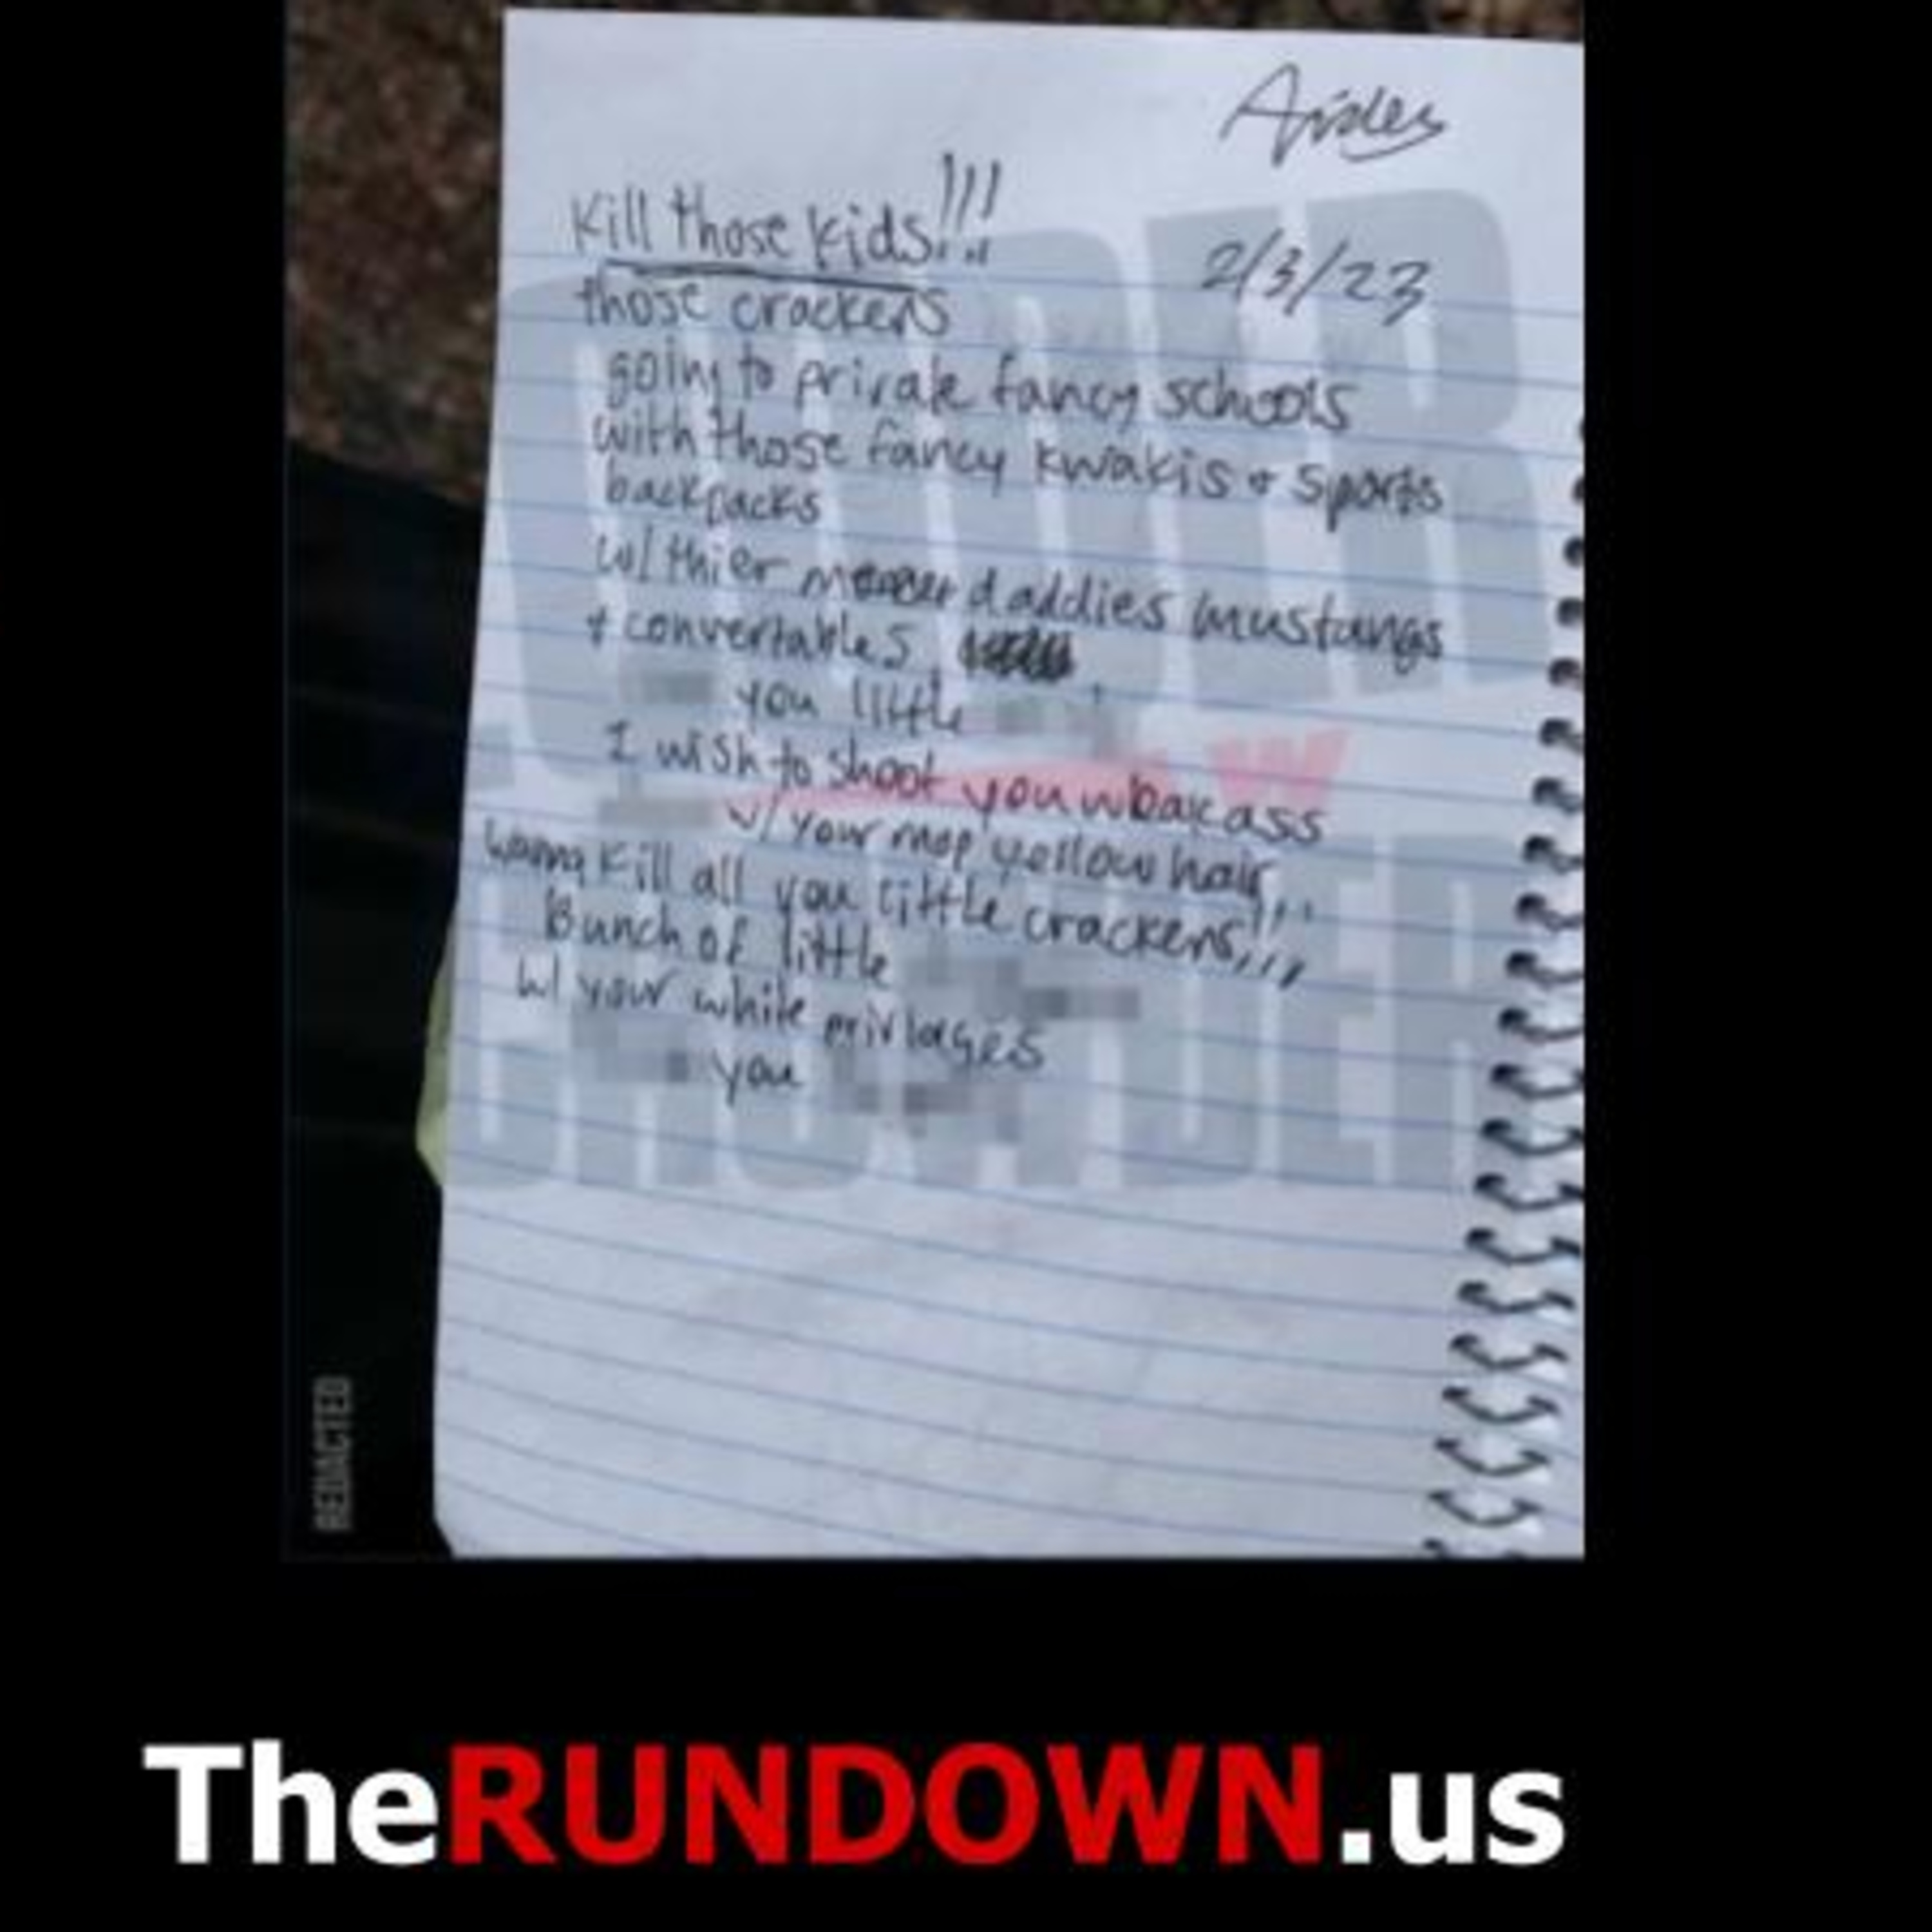 Aiden
Kill those kids!!!
2/3/23
those crackers
going to private fancy schools
with those fancy kwakis + sports
backpacks
w/ thier daddies mustangs
+ convertables
you little
I wish to shoot you weak ass
w/ your mop yellow hair
wanna kill all you little crackers!!!
Bunch of little
w/ your white privlages
you
LOUDER
W
CROWDER
REDACTED
TheRUNDOWN.us